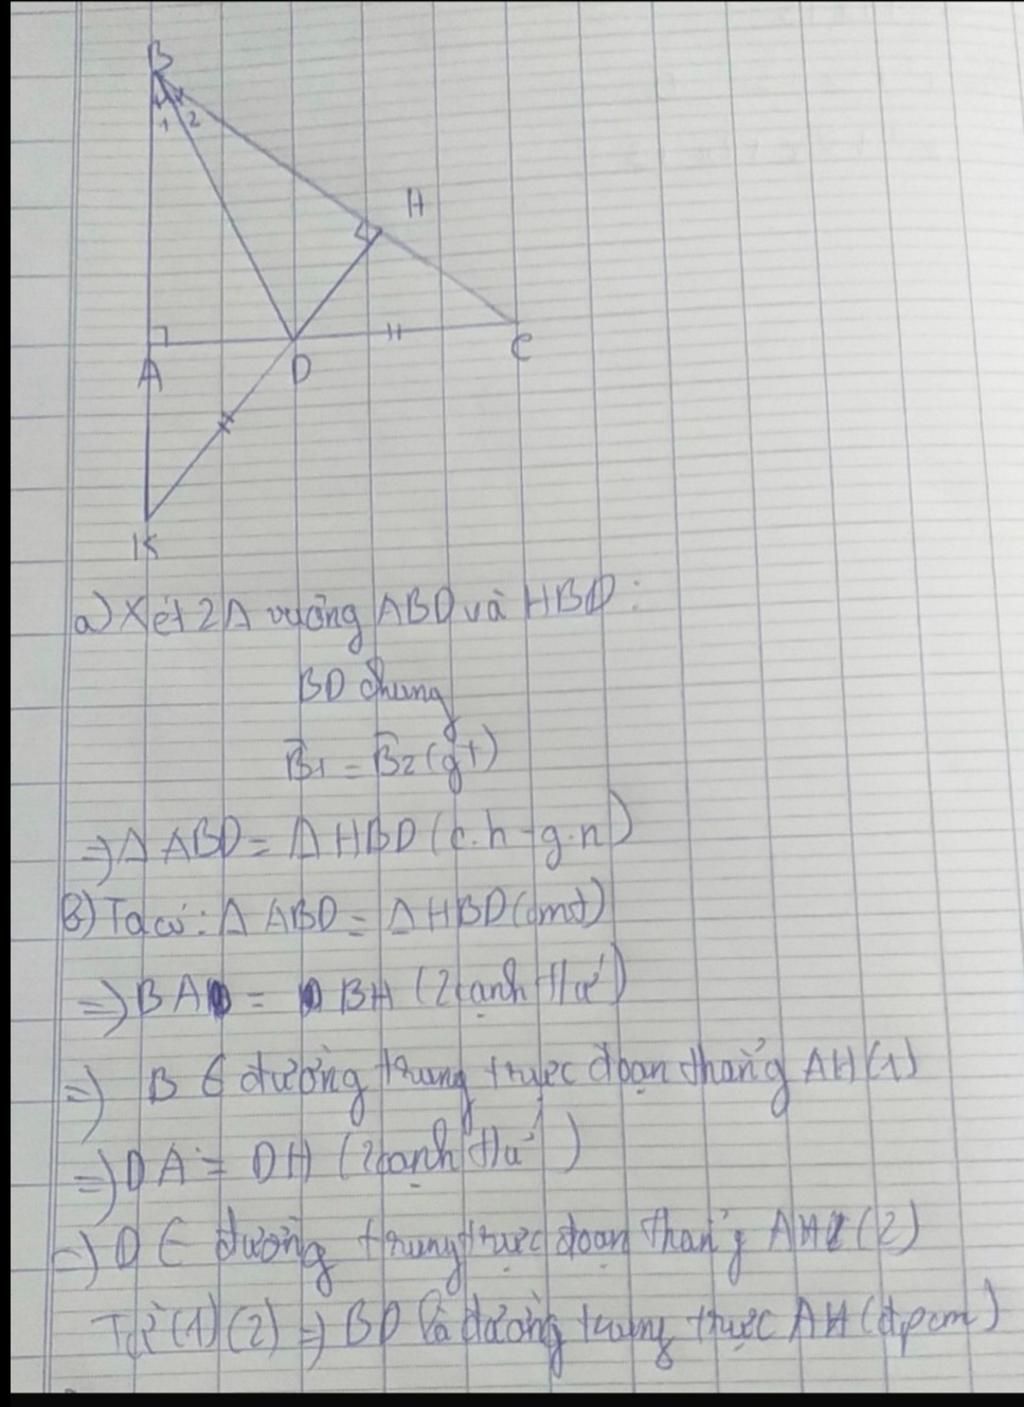 B
1 2
H
A D C
K
a) Xét 2Δ vuông ABD và HBD:
BD chung
B̂1 = B̂2 (gt)
=> Δ ABD = Δ HBD (c.h - g.n)
b) Ta có: Δ ABD = Δ HBD (cmt)
=> BA = BH (2 cạnh t/ư)
=> B ∈ đường trung trực đoạn thẳng AH (1)
=> DA = DH (2 cạnh t/ư)
=> D ∈ đường trung trực đoạn thẳng AH (2)
Từ (1) (2) => BD là đường trung trực AH (đpcm)